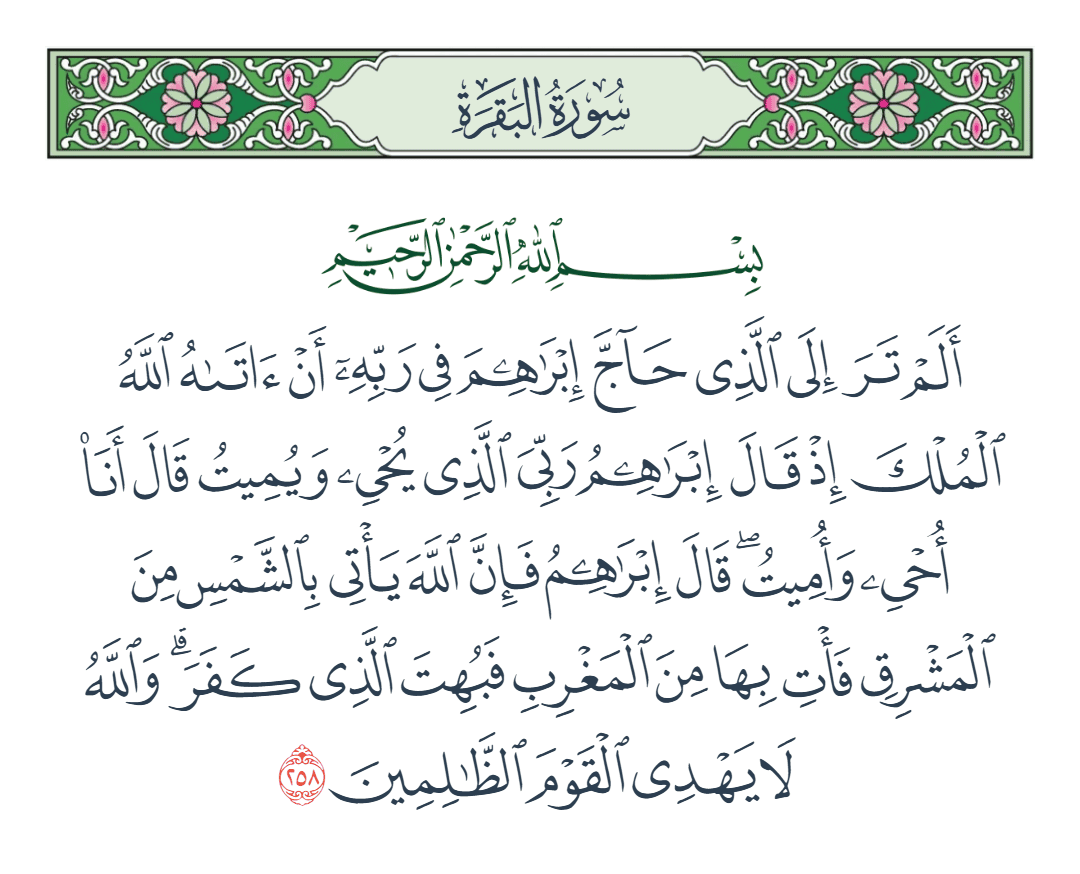 سُورَةُ البَقَرَةِ
بِسْمِ ٱللَّهِ ٱلرَّحْمَٰنِ ٱلرَّحِيمِ
أَلَمْ تَرَ إِلَى ٱلَّذِى حَآجَّ إِبْرَٰهِـۧمَ فِى رَبِّهِۦٓ أَنْ ءَاتَىٰهُ ٱللَّهُ
ٱلْمُلْكَ إِذْ قَالَ إِبْرَٰهِـۧمُ رَبِّىَ ٱلَّذِى يُحْىِۦ وَيُمِيتُ قَالَ أَنَا۠
أُحْىِۦ وَأُمِيتُ ۖ قَالَ إِبْرَٰهِـۧمُ فَإِنَّ ٱللَّهَ يَأْتِى بِٱلشَّمْسِ مِنَ
ٱلْمَشْرِقِ فَأْتِ بِهَا مِنَ ٱلْمَغْرِبِ فَبُهِتَ ٱلَّذِى كَفَرَ ۗ وَٱللَّهُ
لَا يَهْدِى ٱلْقَوْمَ ٱلظَّٰلِمِينَ ٢٥٨